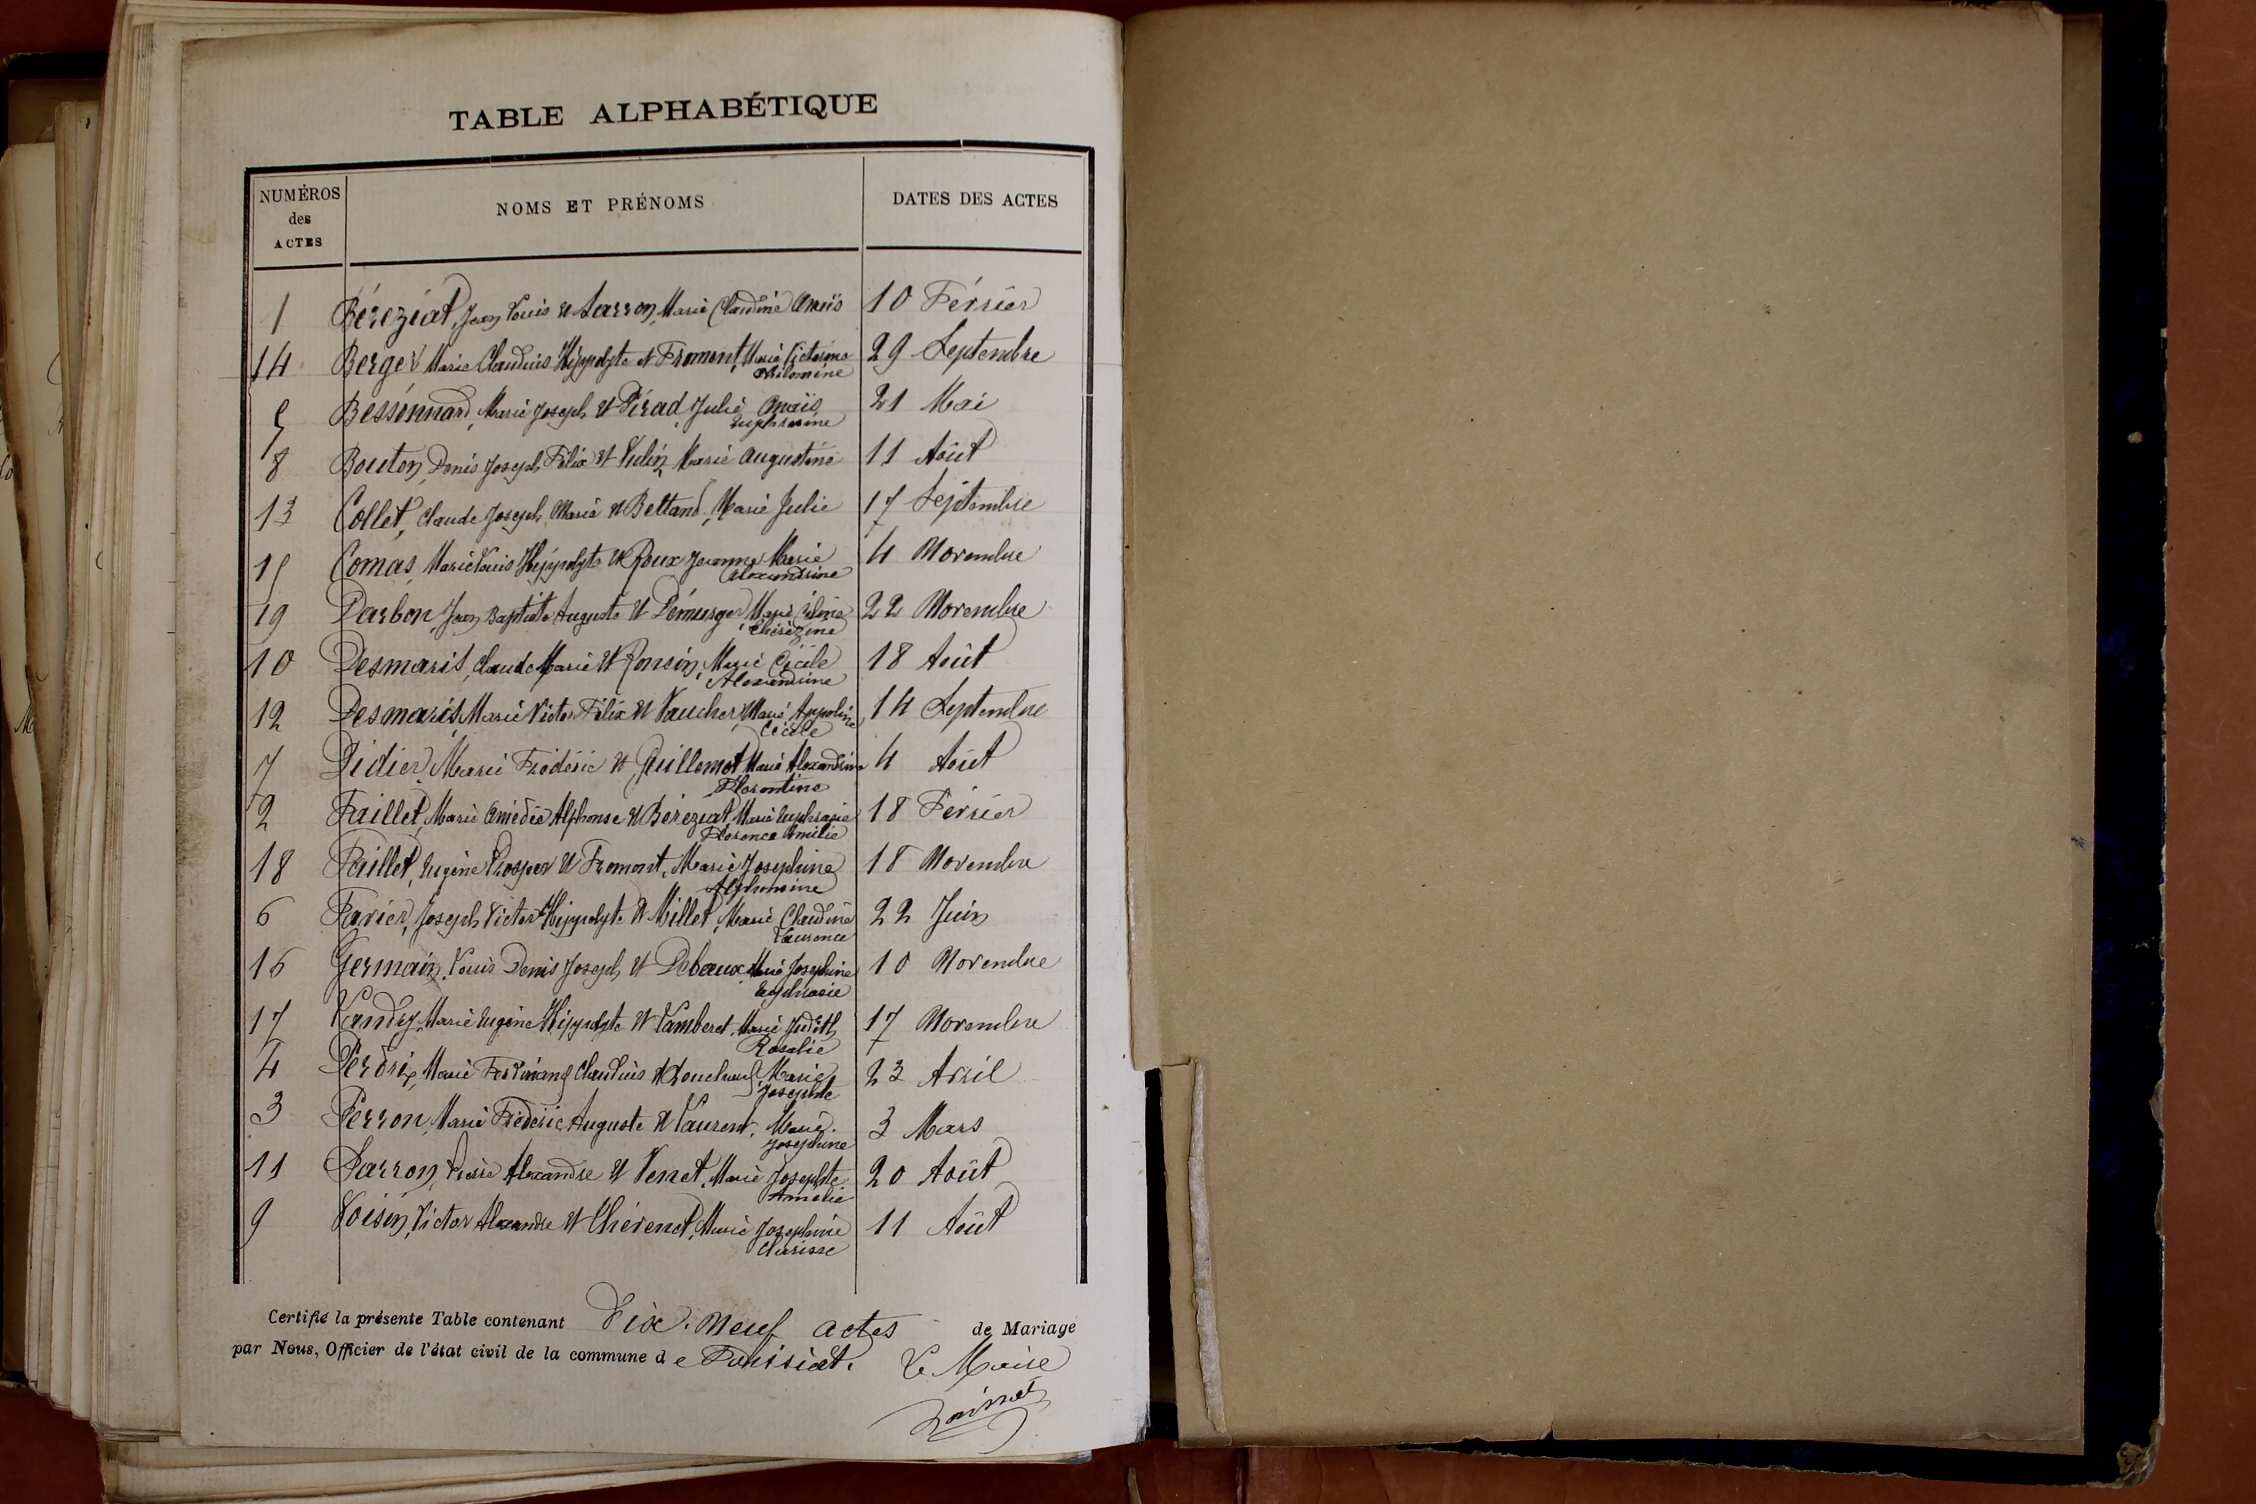 TABLE ALPHABÉTIQUE
NUMÉROS des ACTES NOMS ET PRÉNOMS DATES DES ACTES
1 Béréziat, Jean Louis et Sarron, Marie Claudine Anaïs 10 Février
14 Berger Marie Claudius Hippolyte et Fromont, Marie Victorine 29 Septembre
Philomène
5 Bessonnard, Marie Joseph et Pérad, Julie Anaïs 21 Mai
Euphrasine
8 Bouton, Denis Joseph Félix et Vulin, Marie Augustine 11 Août
13 Collet, Claude Joseph Marie et Beltand, Marie Julie 17 Septembre
15 Comas, Marie Louis Hippolyte et Roux Jeanne Marie 4 Novembre
Alexandrine
19 Darbon, Jean Baptiste Auguste et Démurger, Marie Zélinie 22 Novembre
Thérézine
10 Desmaris, Claude Marie et Ronsin, Marie Cécile 18 Août
Alexandrine
12 Desmaris, Marie Victor Félix et Vaucher, Marie Appoline 14 Septembre
Cécile
7 Didier, Marie Frédéric et Guillemot, Marie Alexandrine 4 Août
Florentine
2 Faillet, Marie Amédée Alphonse et Béréziat, Marie Euphrasie 18 Février
Florence Amélie
18 Faillet, Eugène Prosper et Fromont, Marie Josephine 18 Novembre
Alphonsine
6 Favier, Joseph Victor Hippolyte et Millet, Marie Claudine 22 Juin
Laurence
16 Germain, Louis Denis Joseph et Debaux, Marie Josephine 10 Novembre
Euphrasie
17 Landry, Marie Eugène Hippolyte et Lamberet, Marie Judith 17 Novembre
Rosalie
4 Perdrix, Marie Ferdinand Claudius et Marie 23 Avril
Josephte
3 Perron, Marie Frédéric Auguste et Laurent, Marie 3 Mars
Josephine
11 Sarron, Pierre Alexandre et Venet, Marie Josephte 20 Août
Amélie
9 Voisin, Victor Alexandre et Chérenet, Marie Josephine 11 Août
Clarisse
Certifié la présente Table contenant Dix-Neuf actes de Mariage
par Nous, Officier de l'état civil de la commune de Foissiat. Le Maire